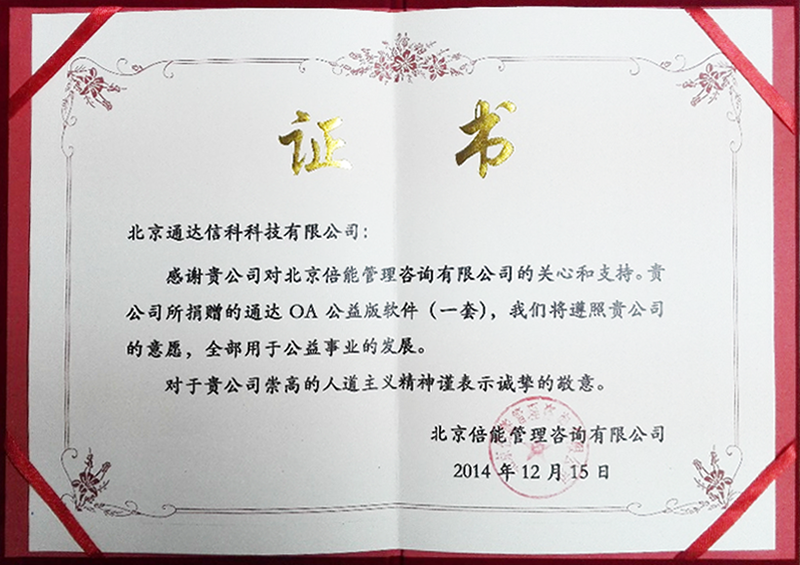 证 书
北京通达信科科技有限公司：
感谢贵公司对北京倍能管理咨询有限公司的关心和支持。贵
公司所捐赠的通达 OA 公益版软件（一套），我们将遵照贵公司
的意愿，全部用于公益事业的发展。
对于贵公司崇高的人道主义精神谨表示诚挚的敬意。
北京倍能管理咨询有限公司
2014 年 12 月 15 日